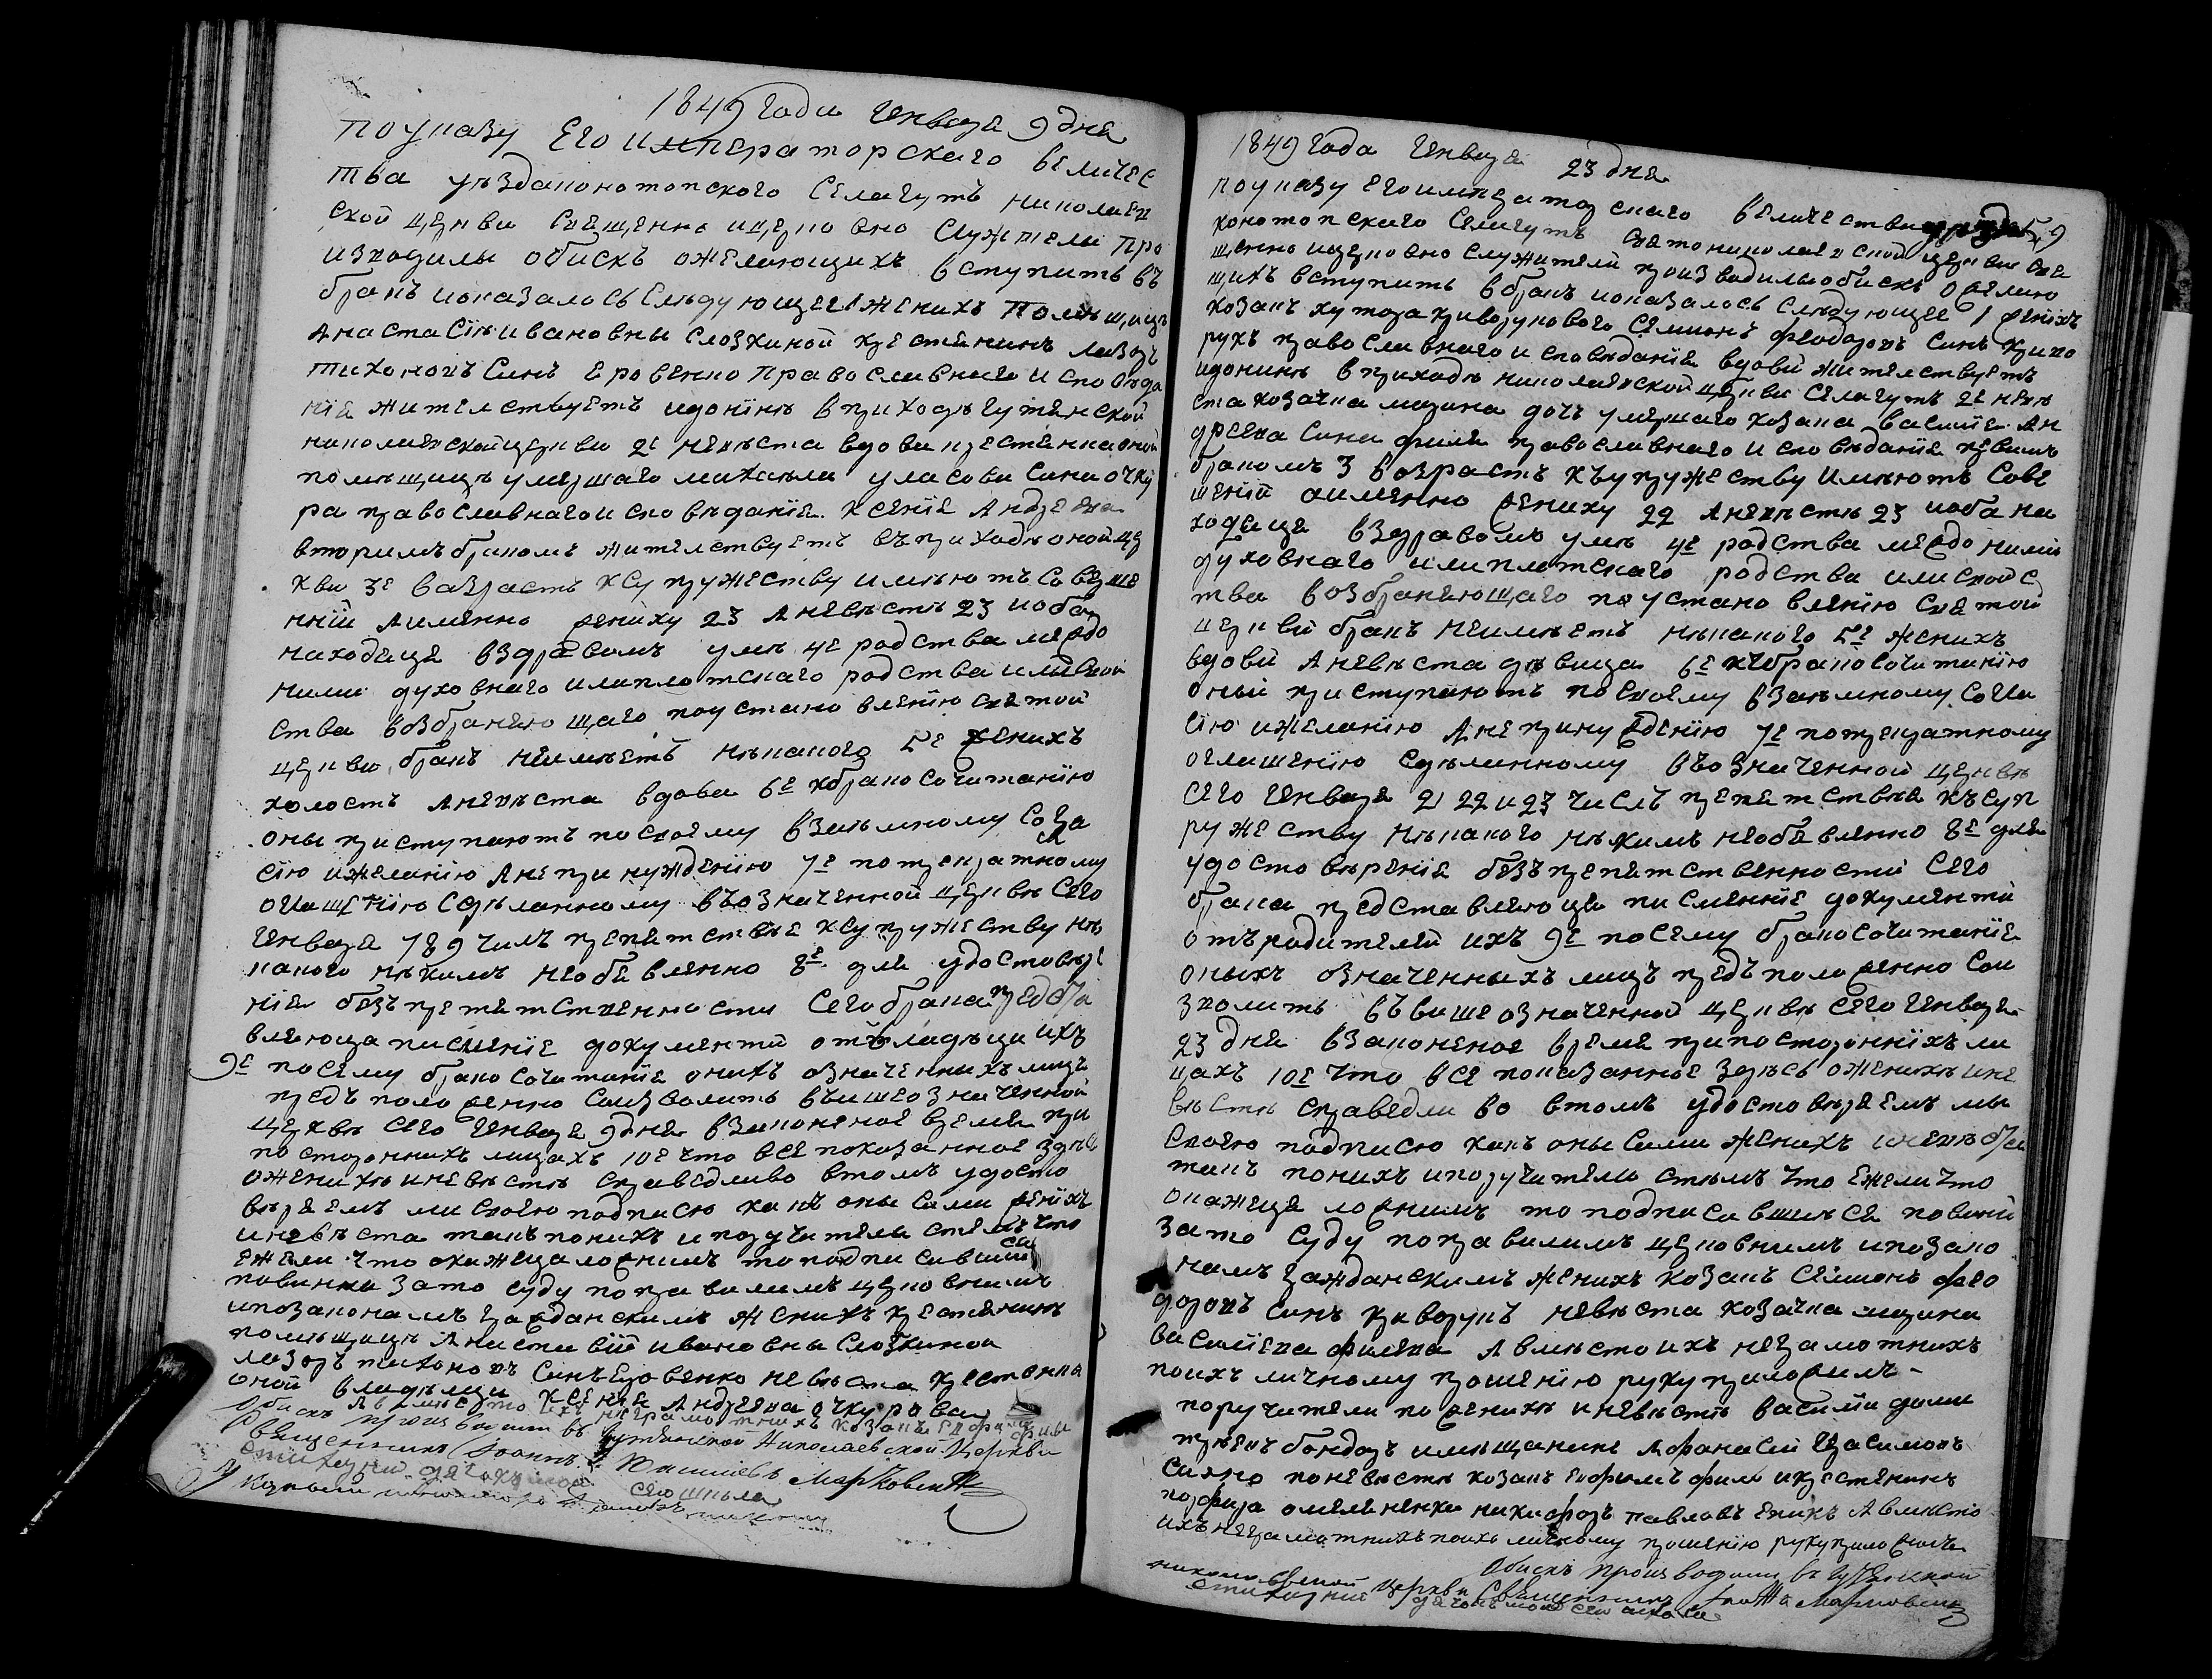 1849 года Генваря 9 дня
По указу Его Императорского величес
тва уѣзда конотопского Села гутъ николаев
ской церкви Священно и церковно Служители про
изводили обискъ о желающихъ вступить въ
бракъ и оказалось Слѣдующее 1 женихъ Помѣщицѣ
Анастасіи ивановны крестянинъ лазоръ
тихоновъ Синъ Еровенко православнаго исповѣда
нія жителствуетъ в приходѣ гутянской
николаевской церкви 2е невѣста вдова крестянка оной
помѣщицѣ умершаго михаила уласова сина очку
ра православнаго исповѣданія ксенія Андреева
вторимъ бракомъ жителствуетъ въ приходѣ оной це
ркви 3е Возрастъ к Супружеству имѣютъ Соверше
нній Аименно жениху 23 Аневѣстѣ 23 и оба
находяця в здравомъ умѣ 4е родства между
ними духовнаго или плотскаго родства или свой
ства возбраняющаго по установленію святой
церкви бракъ неимѣетъ нѣкакого 5е женихъ
холостъ Аневѣста вдова 6е к бракосочитанію
оны приступаютъ по своему взаимному Согла
сію ижеланію Ане принужденію 7е по трекратному
оглашенію Сдѣланному въ означенной церквѣ Сего
Генваря 7 8 9 чилъ препятствіе к Супружеству нѣ
какого нѣкимъ необявленно 8е для удостовѣре
нія безъ препятственности Сего брака предста
вляюца писменіе документи отъ владѣци ихъ
9е по Сему бракосочитаніе онихъ означенныхъ лицъ
предъ положенно Соизволить въ вишеозначенной
церквѣ Сего Генваря 9 дня в законеное время при
постороннихъ лицахъ 10е что всe показанное здѣсь
о женихѣ иневѣстѣ справедливо втомъ удосто
вѣряемъ ми своею подписю какъ оны Сами женихъ
иневѣста такъ поних и поручители стѣмъ что
ежели что окажеця ложнимъ то подписавшиеся
повинни зато суду по правиламъ церковнимъ
ипозаконамъ гражданскимъ женихъ крестянинъ
помѣщицѣ Анастасіи ивановны
лазоръ тихоновъ Синъ Еровенко невѣста крестянка
оной владѣлци ксенія Андреева очкурова
Авмѣсто ихъ неграмотнихъ козакъ
Обискъ производили въ Гутянской Николаевской Церкви
Священникъ Іоаннъ Маркове
стихарній дячокъ

1849 года Генваря 23 дня
по указу Его императорскаго величества уезда
конотопскаго Села гутъ свято николаевской церкви свя
щенно ицерковно служители производили обискъ о желаю
щихъ вступить в бракъ и оказалось Слѣдующее 1 женихъ
козакъ хутора криворукового Семионъ феодоровъ Синъ криво
рукъ православнаго исповѣданія вдовий жителствуетъ
в приходѣ николаевской церкви Села гутъ 2е невѣ
ста козачка марина дочъ умершаго козака василія Ан
дреева сина филя православнаго исповѣданія первимъ
бракомъ 3 возрастъ къ супружеству имѣютъ Сове
шеній аименно жениху 22 Аневѣстѣ 23 и оба на
ходяця в здравомъ умѣ 4е родства между ними
духовнаго или плотскаго родства или свойс
тва возбраняющаго по установленію святой
церкви бракъ неимѣетъ нѣкакого 5е женихъ
вдовий Аневѣста дѣвица 6е къ бракосочитанію
оный приступаютъ по своему взаимному согла
сію ижеланію Ане принужденію 7е по трекратному
оглашенію Сдѣланному въ означенной церквѣ
Сего Генваря 21 22 и 23 чисель препятствія къ суп
ружеству нѣкакого нѣкимъ необявленно 8е для
удостовѣренія безъ препятственности Сего
брака представляюця писменніе документи
отъ родителей ихъ 9е посему бракосочитаніе
оныхъ означенныхъ лицъ предъ положенно Сои
зволить въ више означенной церквѣ Сего Генваря
23 дня в законеное время при постороннихъ ли
цахъ 10е что все показанное здѣсь о женихѣ ине
вѣстѣ справедливо втомъ удостовѣряемъ мы
своею подписю какъ оны Сами женихъ иневѣста
такъ понихъ ипоручители стѣмъ что ежели что
окажеця ложнимъ то подписавшиеся повинй
зато Суду по правиламъ церковнимъ ипозако
намъ гражданскимъ женихъ козакъ Семионъ фео
доровъ синъ криворукъ невѣста козачка марина
василіева филева Авмѣсто ихъ неграмотнихъ
поихъ личному прошенію руку приложилъ-
поручители по женихѣ иневѣстѣ василий
бондаръ имѣщанинъ Афанасій герасимовъ
синко по невѣстѣ козакъ Ефимъ филь икрестянинъ
порфира омеляненка никифоръ павловъ Авмѣсто
ихъ неграмотнихъ поихъ личному прошенію руку приложилъ
Обискъ производили въ Гутянской
николаевской Церкви Священникъ
стихарній дячокъ